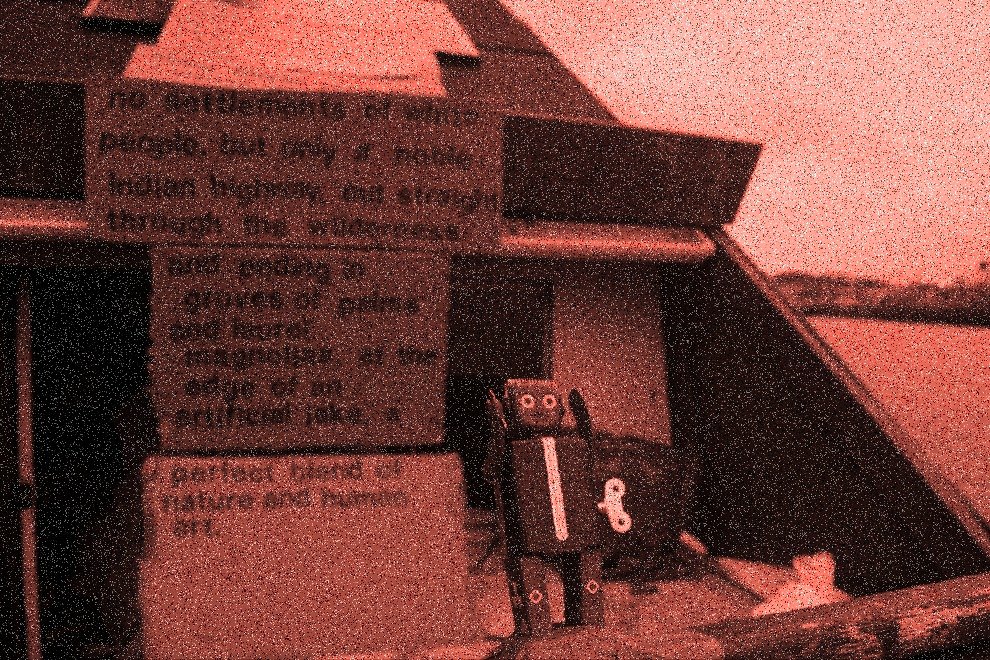 no settlements of white
people, but only a noble
Indian highway, out straight
through the wilderness.
and ending in
groves of palms
and laurel
magnolias, at the
edge of an
artificial lake, a
perfect blend of
nature and human
art.